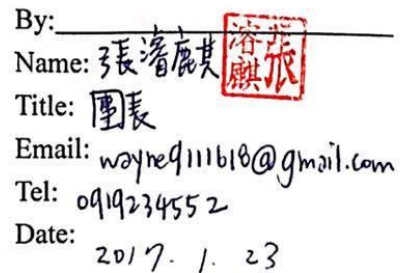 By:
Name: 張濬麒 張濬麒
Title: 團長
Email: wayne9111618@gmail.com
Tel: 0919234552
Date: 2017. 1. 23